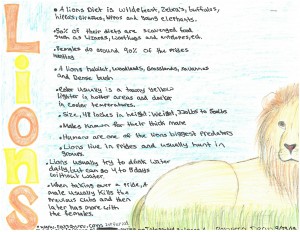 Lions
• A lions Diet is wildebeest, Zebra's, buffalos,
hippos, giraffes, rhinos and young elephants.
• 50% of their diets are scavenged food
such as lizards,
• Females do around 90% of the prides
hunting
• A lions habitat, woodlands, Grasslands, savannas
and Dense bush
• Color usually is a tawny yellow
lighter in hotter areas and darker
in cooler temperatures.
• Size, 48 inches in height: Weight,
• Males known for their thick mane
• Humans are one of the lions biggest predators
• Lions live in prides and usually hunt in
groups.
Lions usually try to drink water
daily, but can go 4 to 5 days
without water.
• When taking over a pride, a
male usually kills the
previous cubs and then
later has more with
the females.